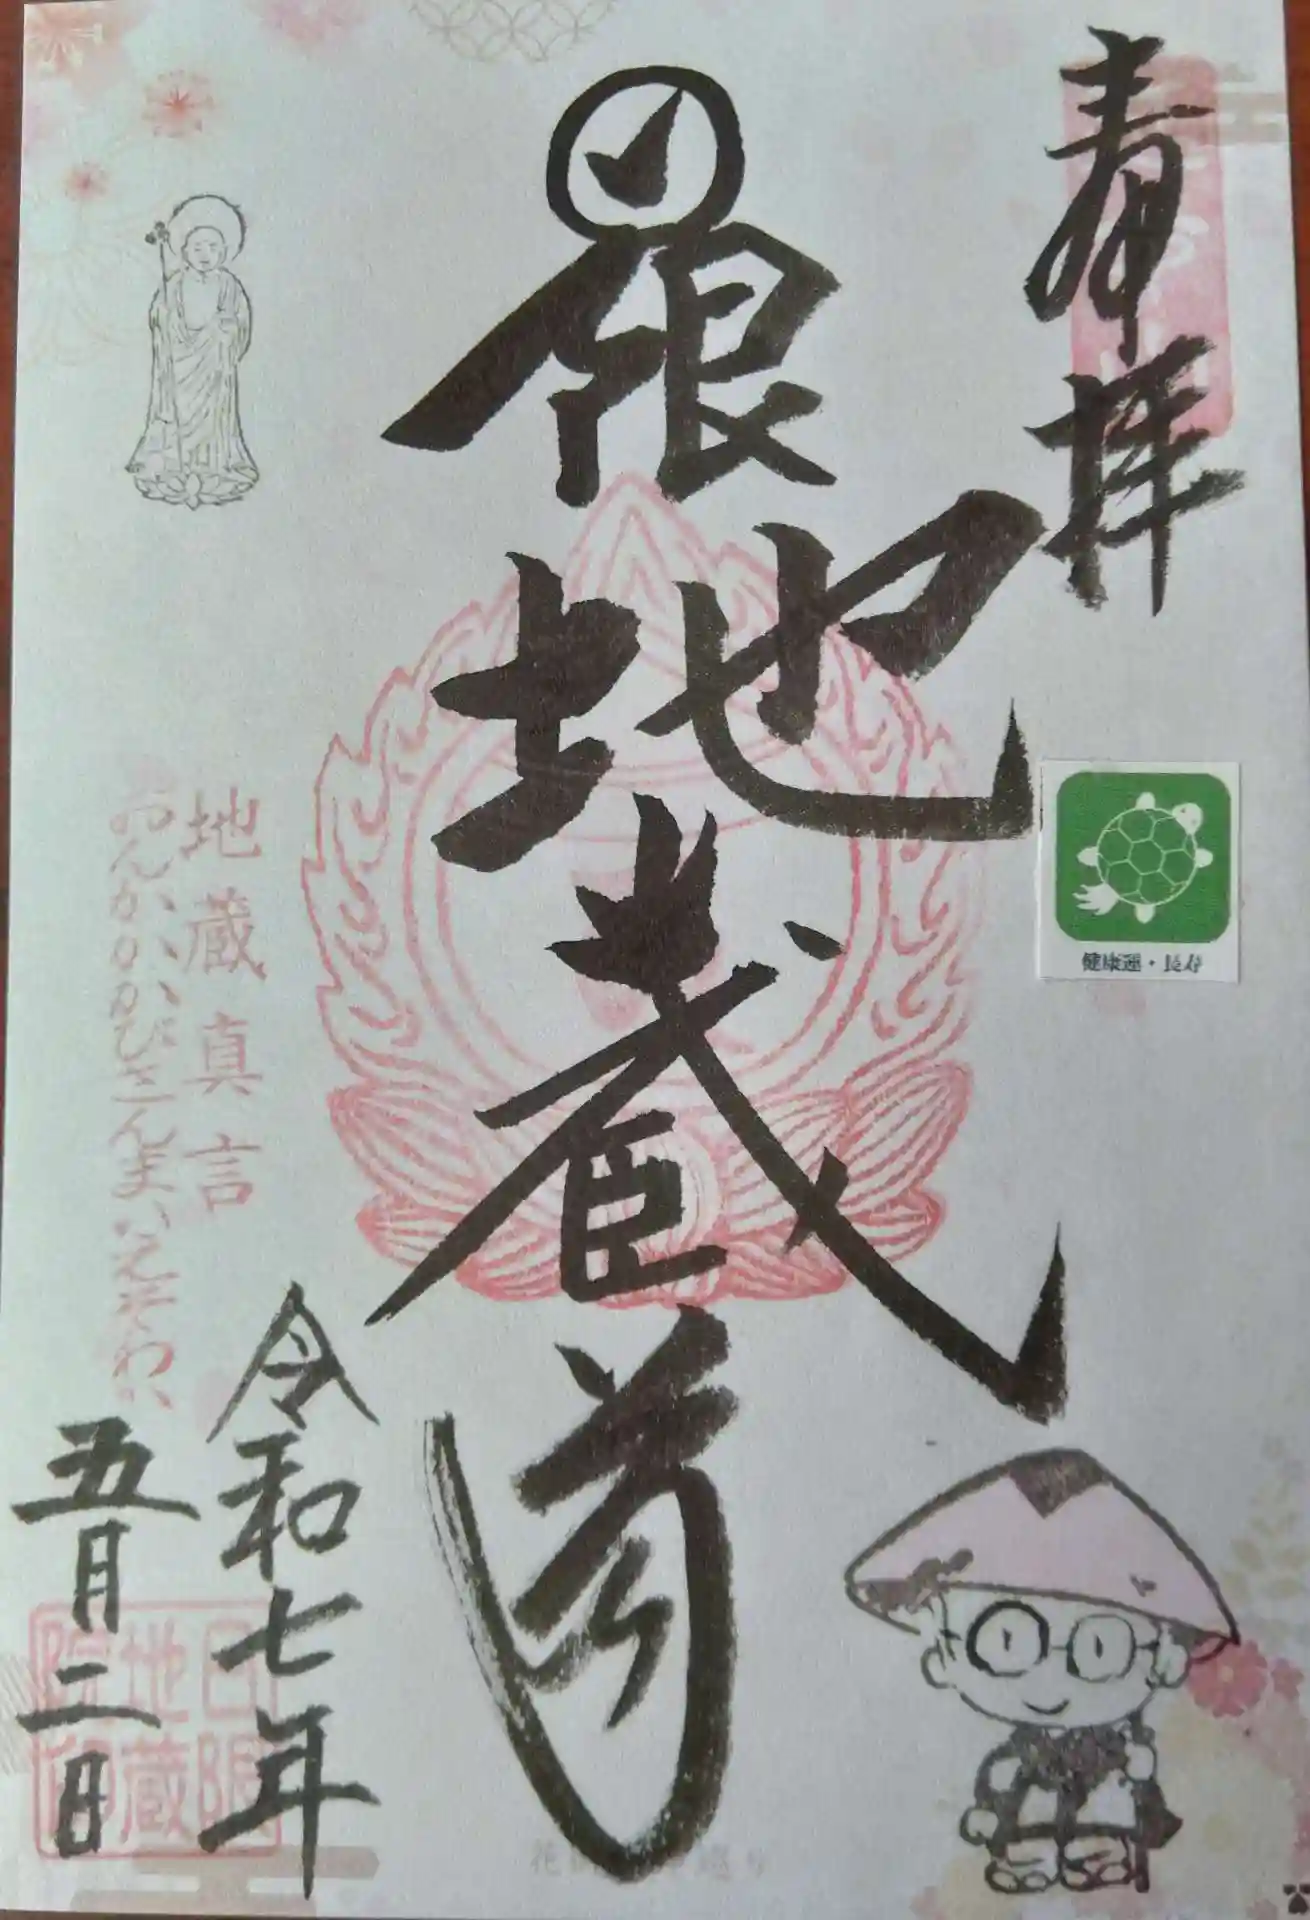 奉拝
日限地蔵尊
健康運・長寿
地蔵真言
おんかかかびさんまいえそわか
令和七年
五月二日
日限
地蔵
院印